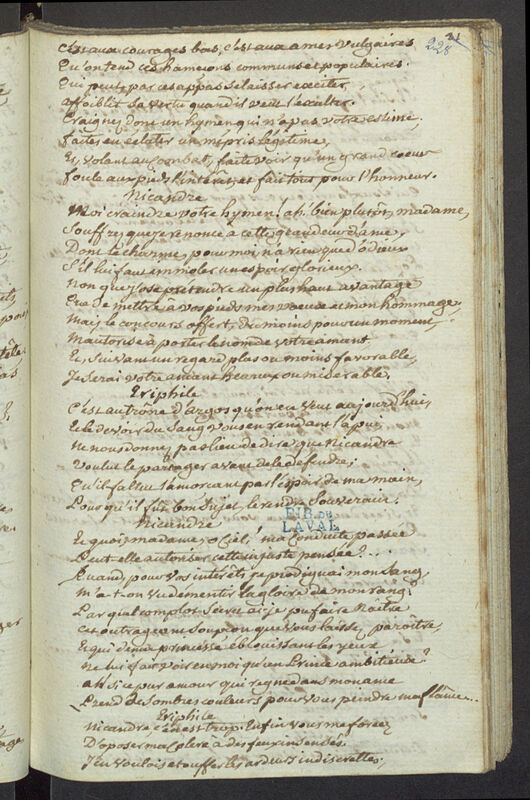 228
c'est aux courages bas, c'est aux ames vulgaires
Qu'on tend ces hameçons communs et populaires.
Qui peut par ces appas se laisser exciter,
affoiblit sa vertu quand il veut l'exalter.
Craignez donc un hymen qui n'a pas votre estime,
faites en éclater un mépris légitime,
Et, volant au combat, faite voir qu'un grand coeur
foule aux pieds l'intérêt, et fait tout pour l'honneur.
Nicandre
Moi craindre votre hymen! ah! bien plutôt, madame,
Souffrez que je renonce à cette grandeur d'ame,
Dont le charme pour moi n'a rien que d'odieux
S'il lui faut immoler un espoir glorieux.
Non que j'ose prétendre un plus haut avantage
Que de mettre à vos pieds mes voeux et mon hommage,
Mais le concours offert, du moins pour un moment,
M'autorise à porter le nom de votre amant
Et, suivant un regard plus ou moins favorable,
Je serai votre amant heureux ou misérable.
Eriphile
C'est au trône d'Argos qu'on en veut aujourd'hui,
Et le devoir du sang vous en rendant l'appui
Ne nous donnez pas lieu de dire que Nicandre
Voulut le partager avant de le défendre;
Qu'il fallut l'amorcer par l'espoir de ma main,
Pour qu'il fût bon sujet, le rendre souverain.
Nicandre
Et quoi, madame, o ciel! ma conduite passée
Peut-elle autoriser cette injuste pensée?...
Quand, pour vos intérêts, je prodiguai mon sang,
M'a-t-on vu démentir la gloire de mon rang?
Par quel complot secret ai-je pu faire naître
Cet outrageant soupçon que vous laissez paroître,
Et qui d'une princesse éblouissant les yeux
Ne lui fait voir en moi qu'un Prince ambitieux?
ah! si ce pur amour qui regne dans mon ame
Prend de sombres couleurs pour vous peindre ma flâme...
Eriphile
Nicandre, c'en est trop. Enfin vous me forcez
D'opposer ma colere à des feux insensés.
J'en voulois étouffer les ardeurs indiscretes,
BIB. DE
LAVAL